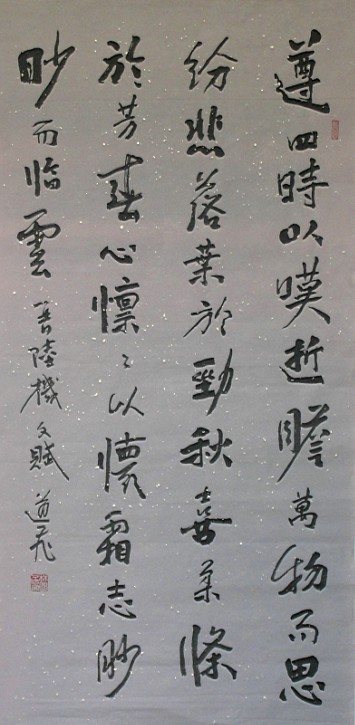 遵四時以嘆逝瞻萬物而思
紛悲落葉於勁秋喜柔條
於芳春心懍々以懷霜志眇
眇而臨雲 晉陸機文賦 道